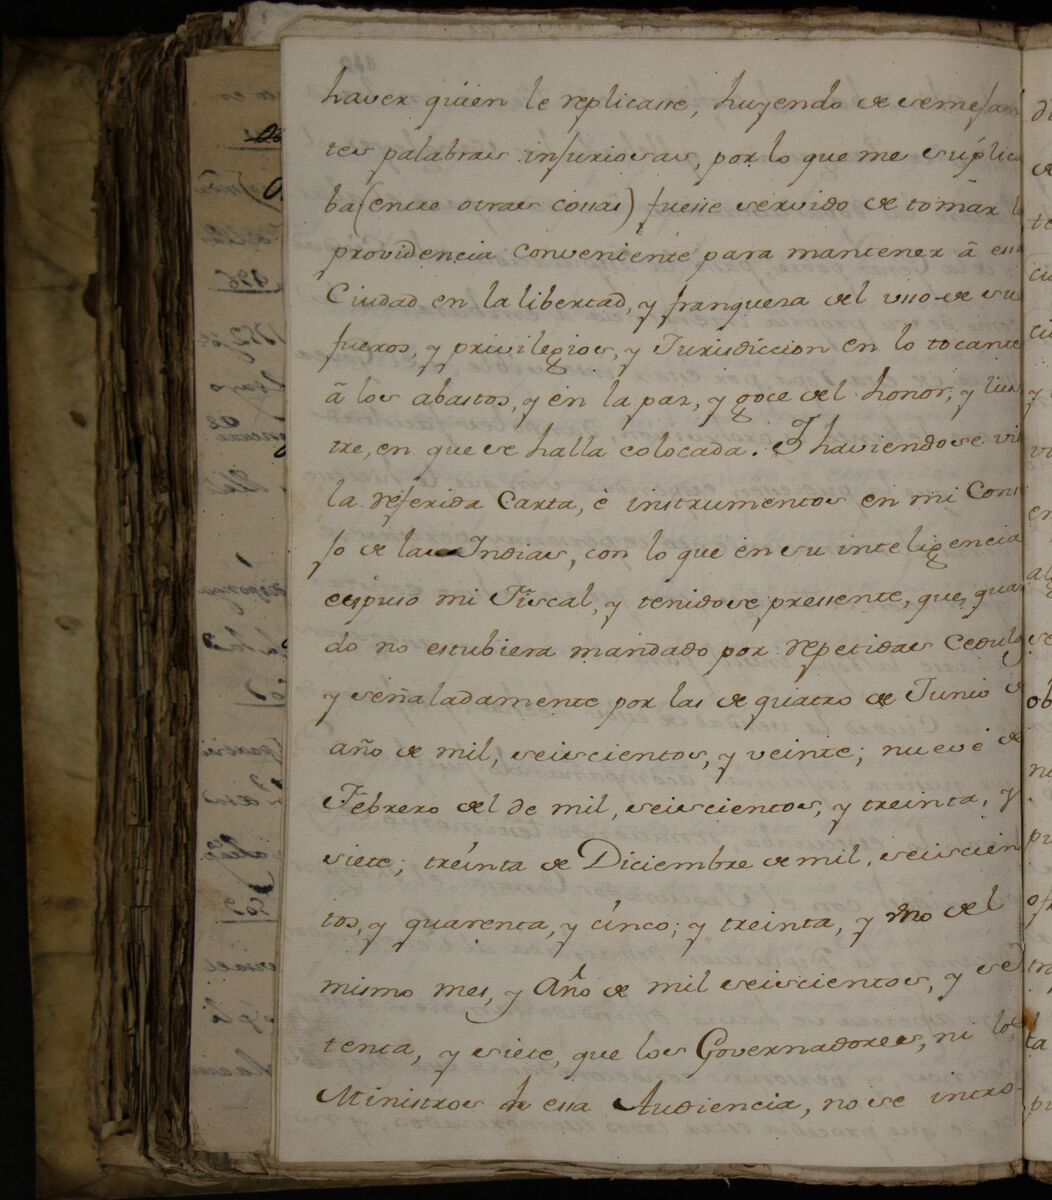 haver quien le replicasse, huyendo de semejan
tes palabras injuriosas, por lo que me suplica
ba (entre otras cossas) fuesse servido de tomar la
providencia conveniente para mantener â essa
Ciudad en la libertad, y franqueza del usso de su
fueros, y privilegios, y Jurisdiccion en lo tocante
â los abastos, y en la paz, y goce del honor, y lus
tre, en que se halla colocada. Y haviendose vis
la referida Carta, é instrumentos en mi Cons
jo de las Indias, con lo que en su inteligencia
expuso mi Fiscal, y tenidose pressente, que, quan
do no estubiera mandado por repetidas Cedulas
y señaladamente por las de quatro de Junio d
año de mil, seiscientos, y veinte; nueve de
Febrero del de mil, seiscientos, y treinta, y
siete; treinta de Diciembre de mil, seiscien
tos, y quarenta, y cinco; y treinta, y uno del
mismo mes, y Año de mil seiscientos, y se
tenta, y siete, que los Governadores, ni los
Ministros de essa Audiencia, no se intro-